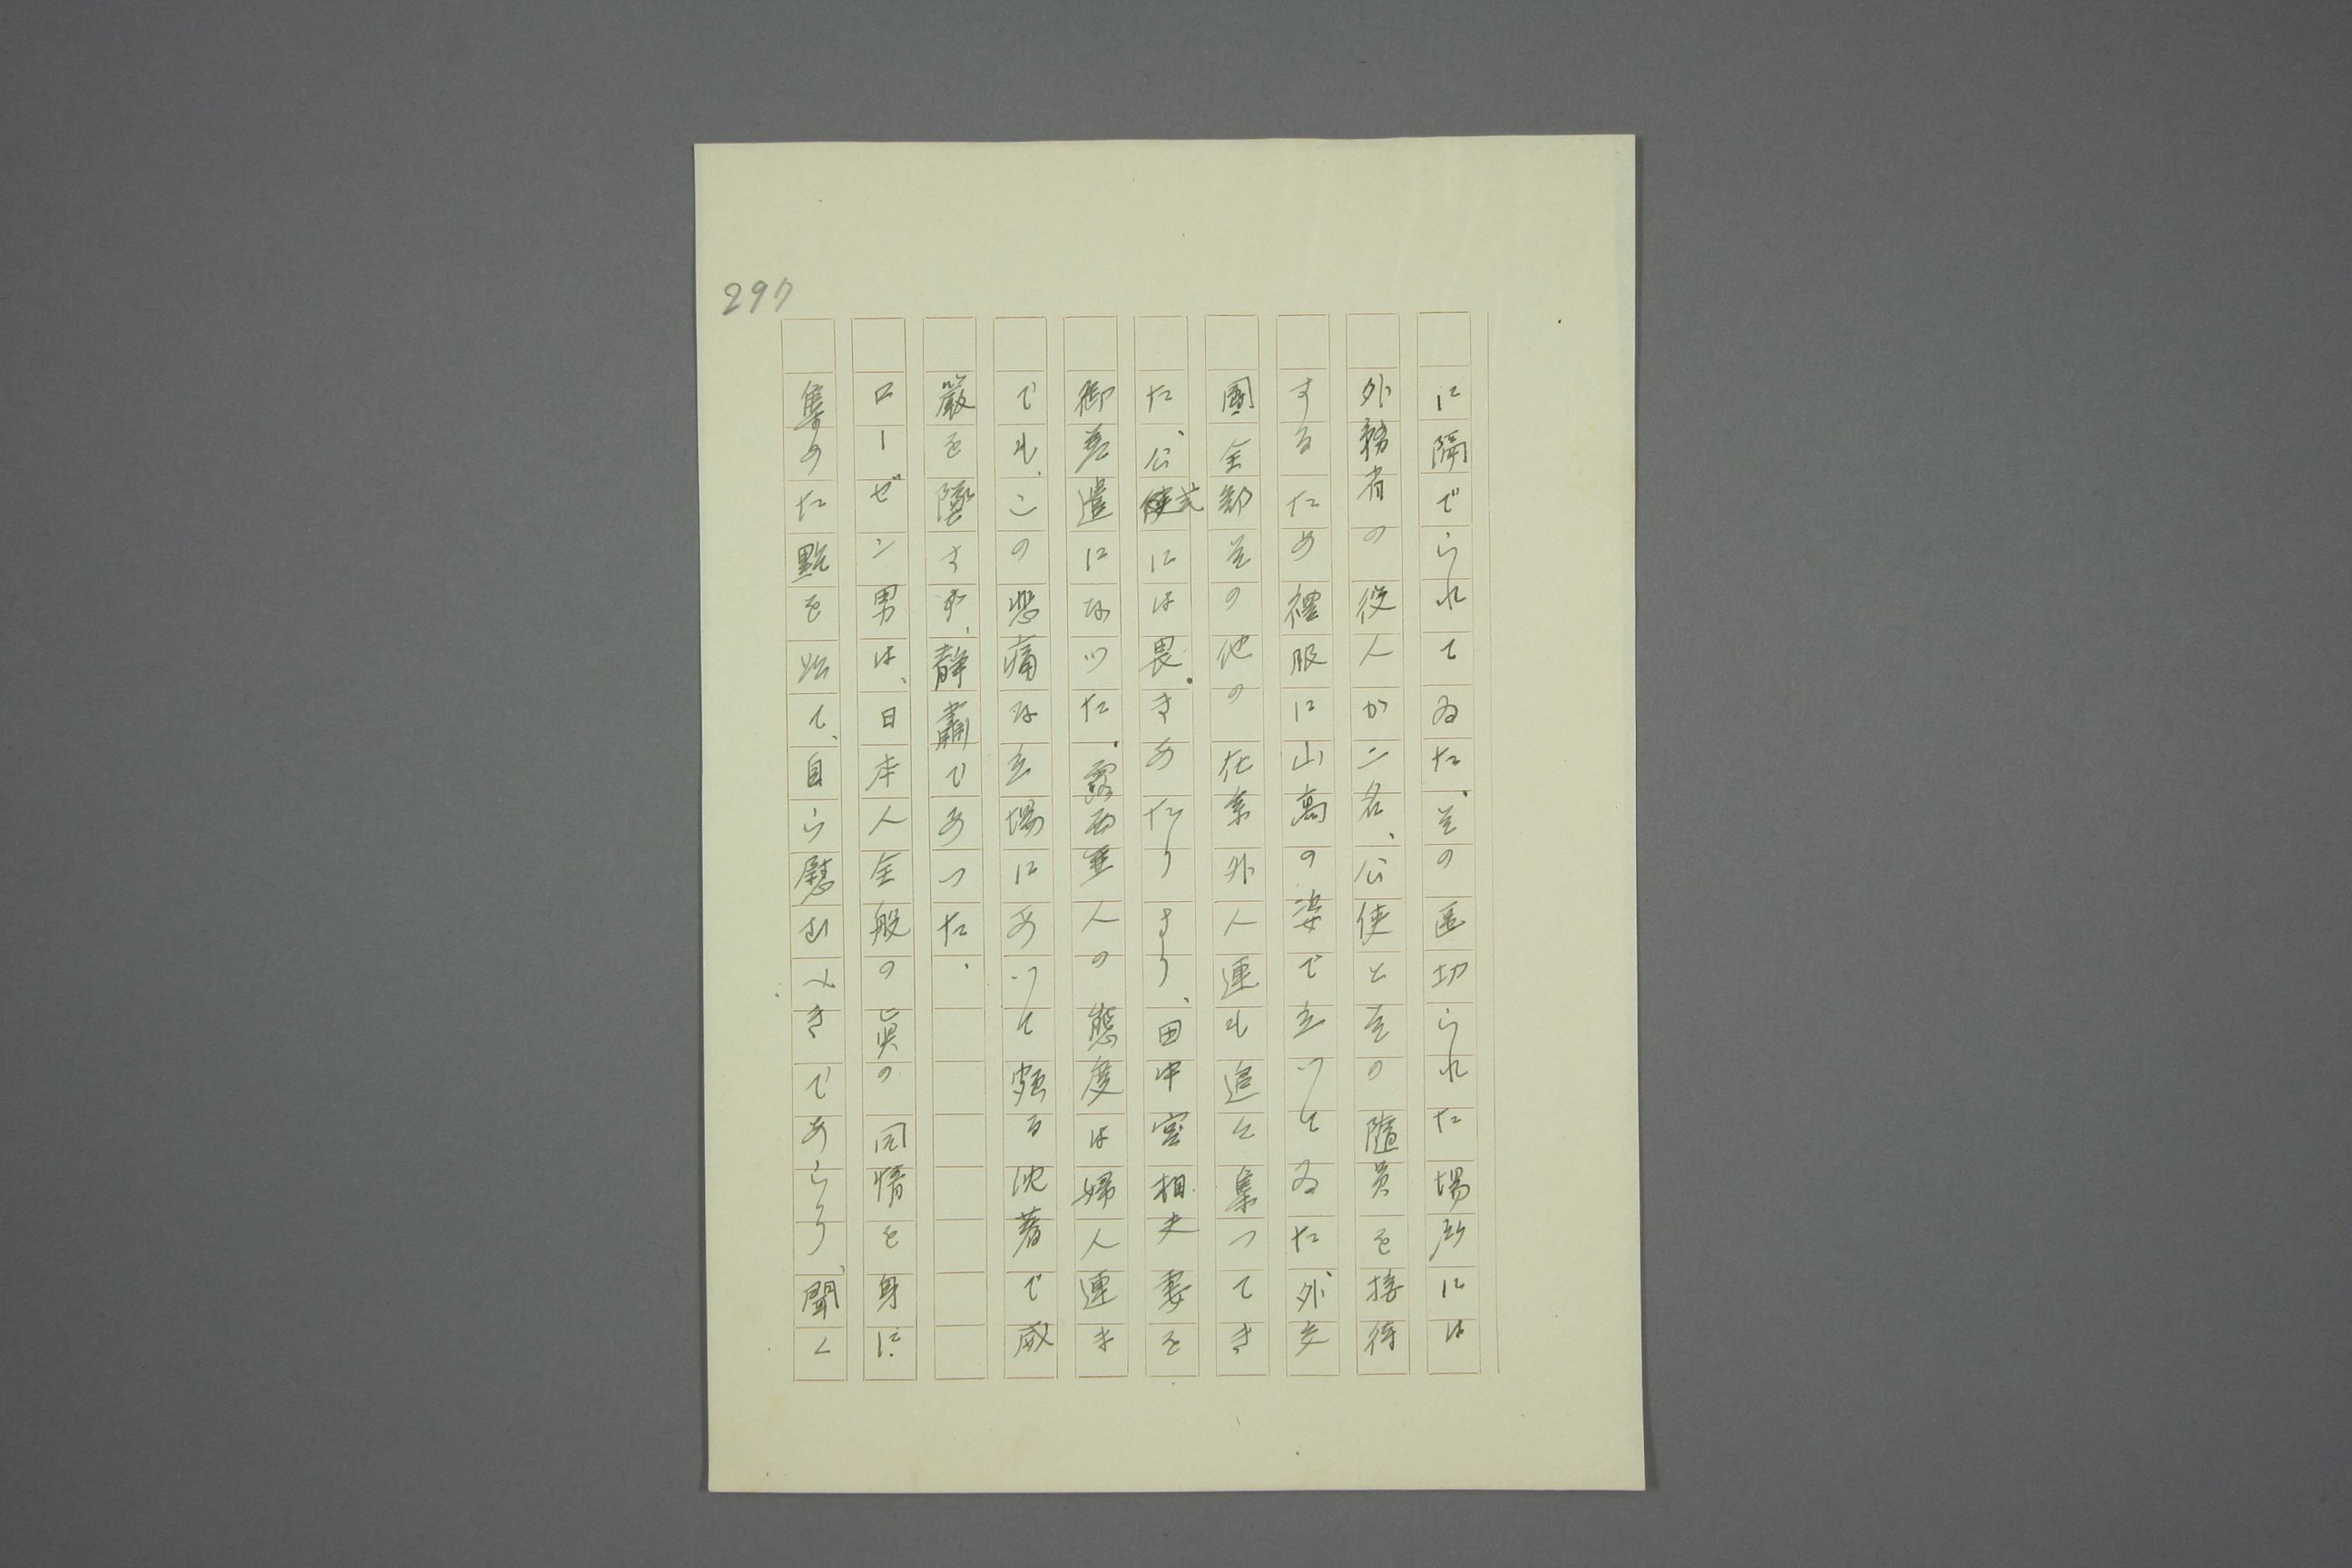 297
に隔でられてゐた。その區切られた場所には
外務省の役人か二名、公使とその隨員を接待
するため禮服に山高の姿で立つてゐた。外交
團全部その他の在京外人連も追々集つてき
た。公式には畏きあたりより、田中宮相夫妻を
御差遣になつた。露西亜人の態度は婦人連ま
でも、この悲痛な立場にあつて頗る沈着で威
厳を墜すず、静肅であつた。
ローゼン男は、日本人全般の眞の同情を身に
集めた點を以て、自ら慰むべきであらう、聞く